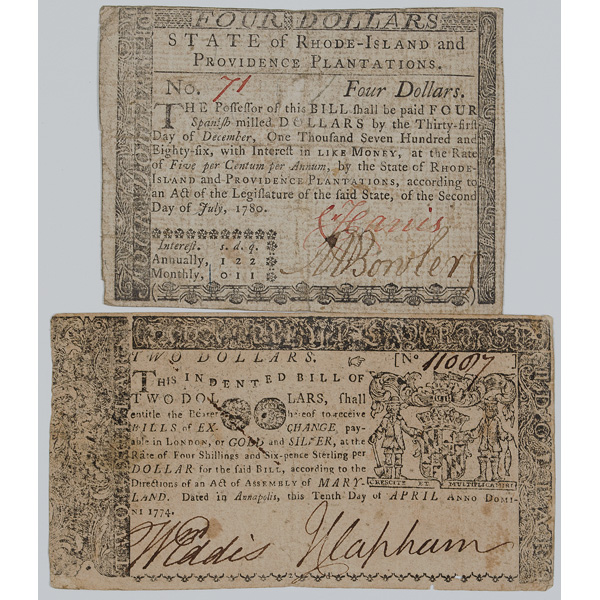 FOUR DOLLARS
STATE of RHODE-ISLAND and
PROVIDENCE PLANTATIONS.
No. 71 Four Dollars.
THE Possessor of this BILL shall be paid FOUR
Spanish milled DOLLARS by the Thirty-first
Day of December, One Thousand Seven Hundred and
Eighty-six, with Interest in LIKE MONEY, at the Rate
of Five per Centum per Annum, by the State of RHODE-
ISLAND and PROVIDENCE PLANTATIONS, according to
an Act of the Legislature of the said State, of the Second
Day of July, 1780.
Interest. s. d. q.
Annually, 1 2 2
Monthly, 0 1 1
Bowler
TWO DOLLARS. [No 11007]
THIS INDENTED BILL OF
TWO DOLLARS, shall
entitle the Bearer hereof to receive
BILLS of EXCHANGE, pay-
able in LONDON, or GOLD and SILVER, at the
Rate of Four Shillings and Six-pence Sterling per
DOLLAR for the said BILL, according to the
Directions of an Act of ASSEMBLY of MARY-
LAND. Dated in Annapolis, this Tenth Day of APRIL ANNO DOMI-
NI 1774.
CRESCITE ET MULTIPLICAMINI
W Eddis J Clapham